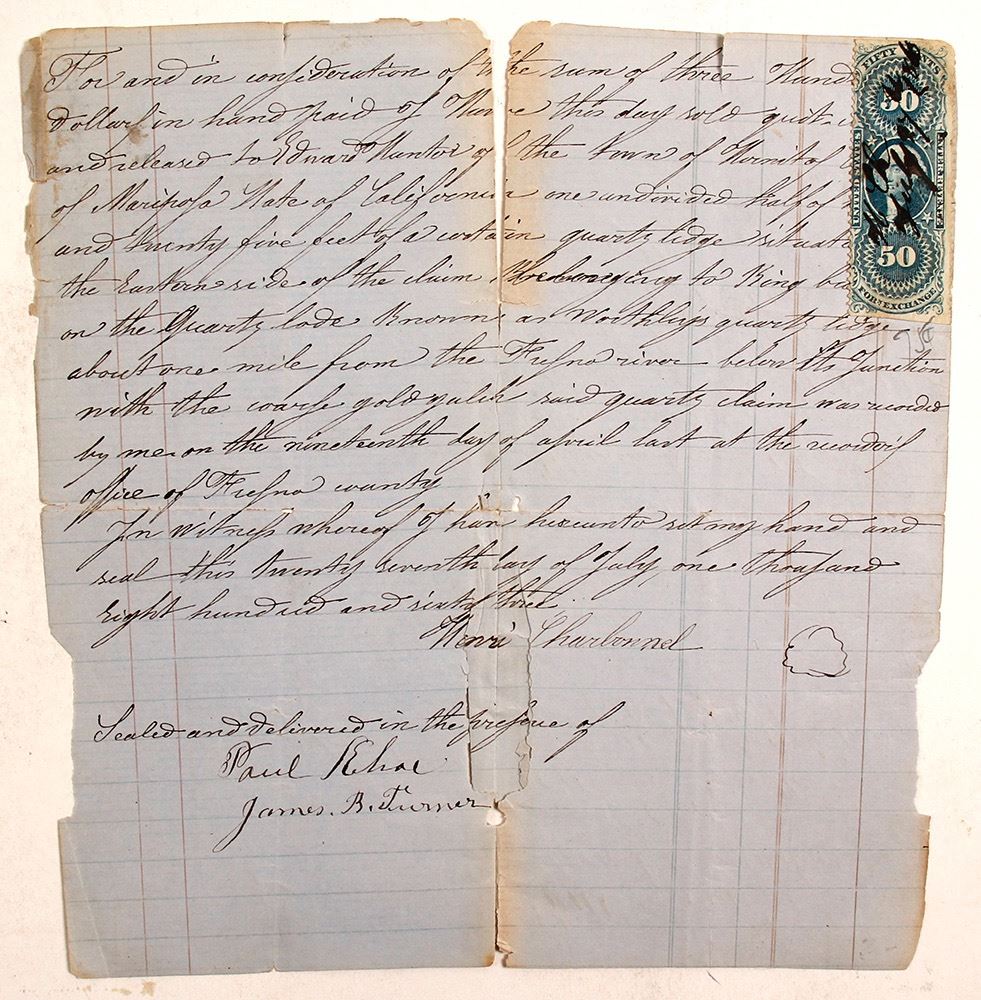 For and in consideration of the sum of three Hund
dollars in hand paid I have this day sold
and released to Edward Hunter of the town of
of Mariposa State of California one undivided half of
and twenty five feet of a certain quartz lidge situat
the Eastern side of the claim belonging to King
on the Quartz lode Known as Worthleys quartz lidge
about one mile from the Fresno river below its Junction
with the coarse gold gulch said quartz claim was recorded
by me on the nineteenth day of april last at the recorders
office of Fresno county
In witness whereof I have hereunto set my hand and
seal this twenty seventh day of July, one thousand
Eight hundred and sixty three.
Henri Charbonnel
Sealed and delivered in the presence of
Paul
James. B. Turner
FIFTY CENTS
50
UNITED STATES
INTER. REVENUE
50
FOR. EXCHANGE